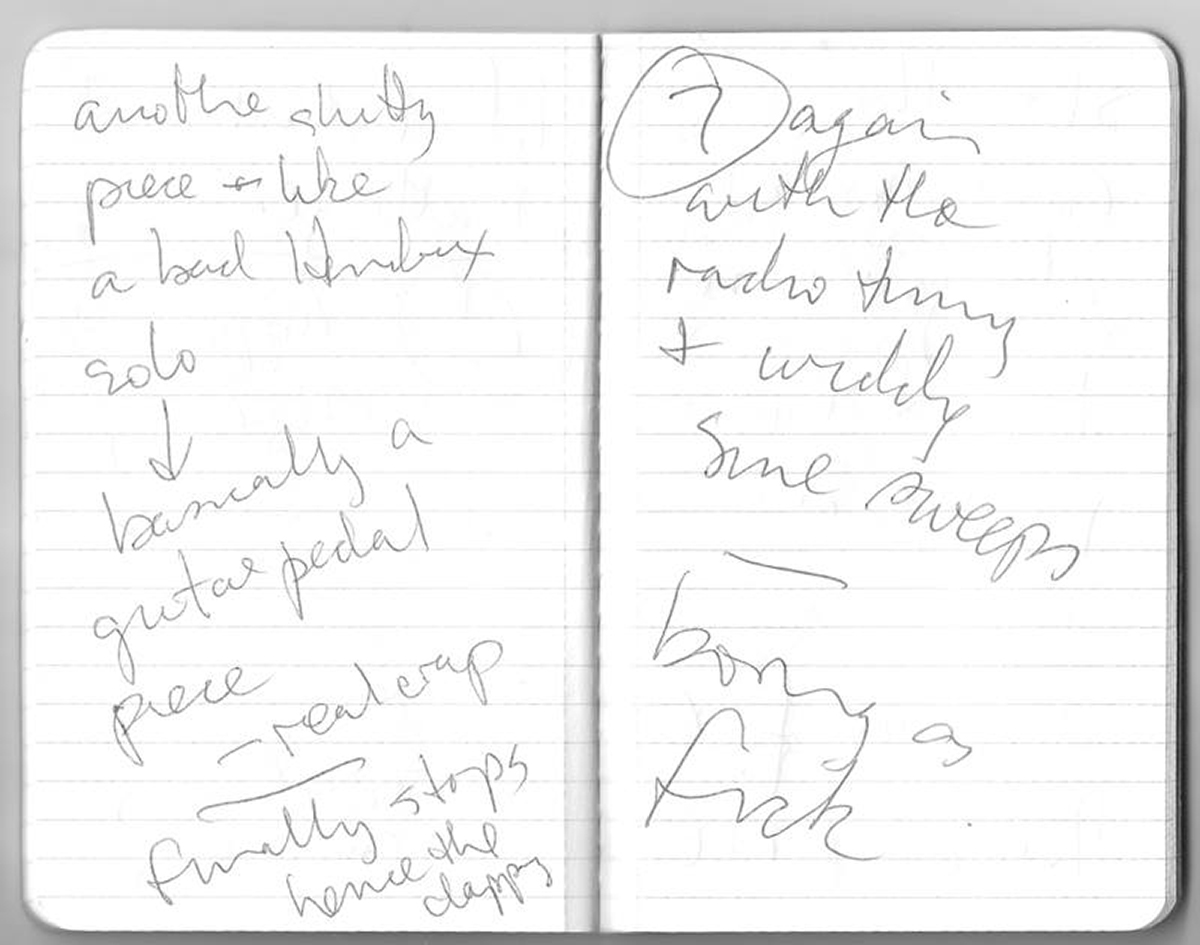 another shitty
piece → like
a bad Hendrix
solo
↓
basically a
guitar pedal
piece
– real crap
—
finally stops
hence the
clapping
7 again
with the
radio tuning
+ widdly
sine sweeps
—
boring as
fuck